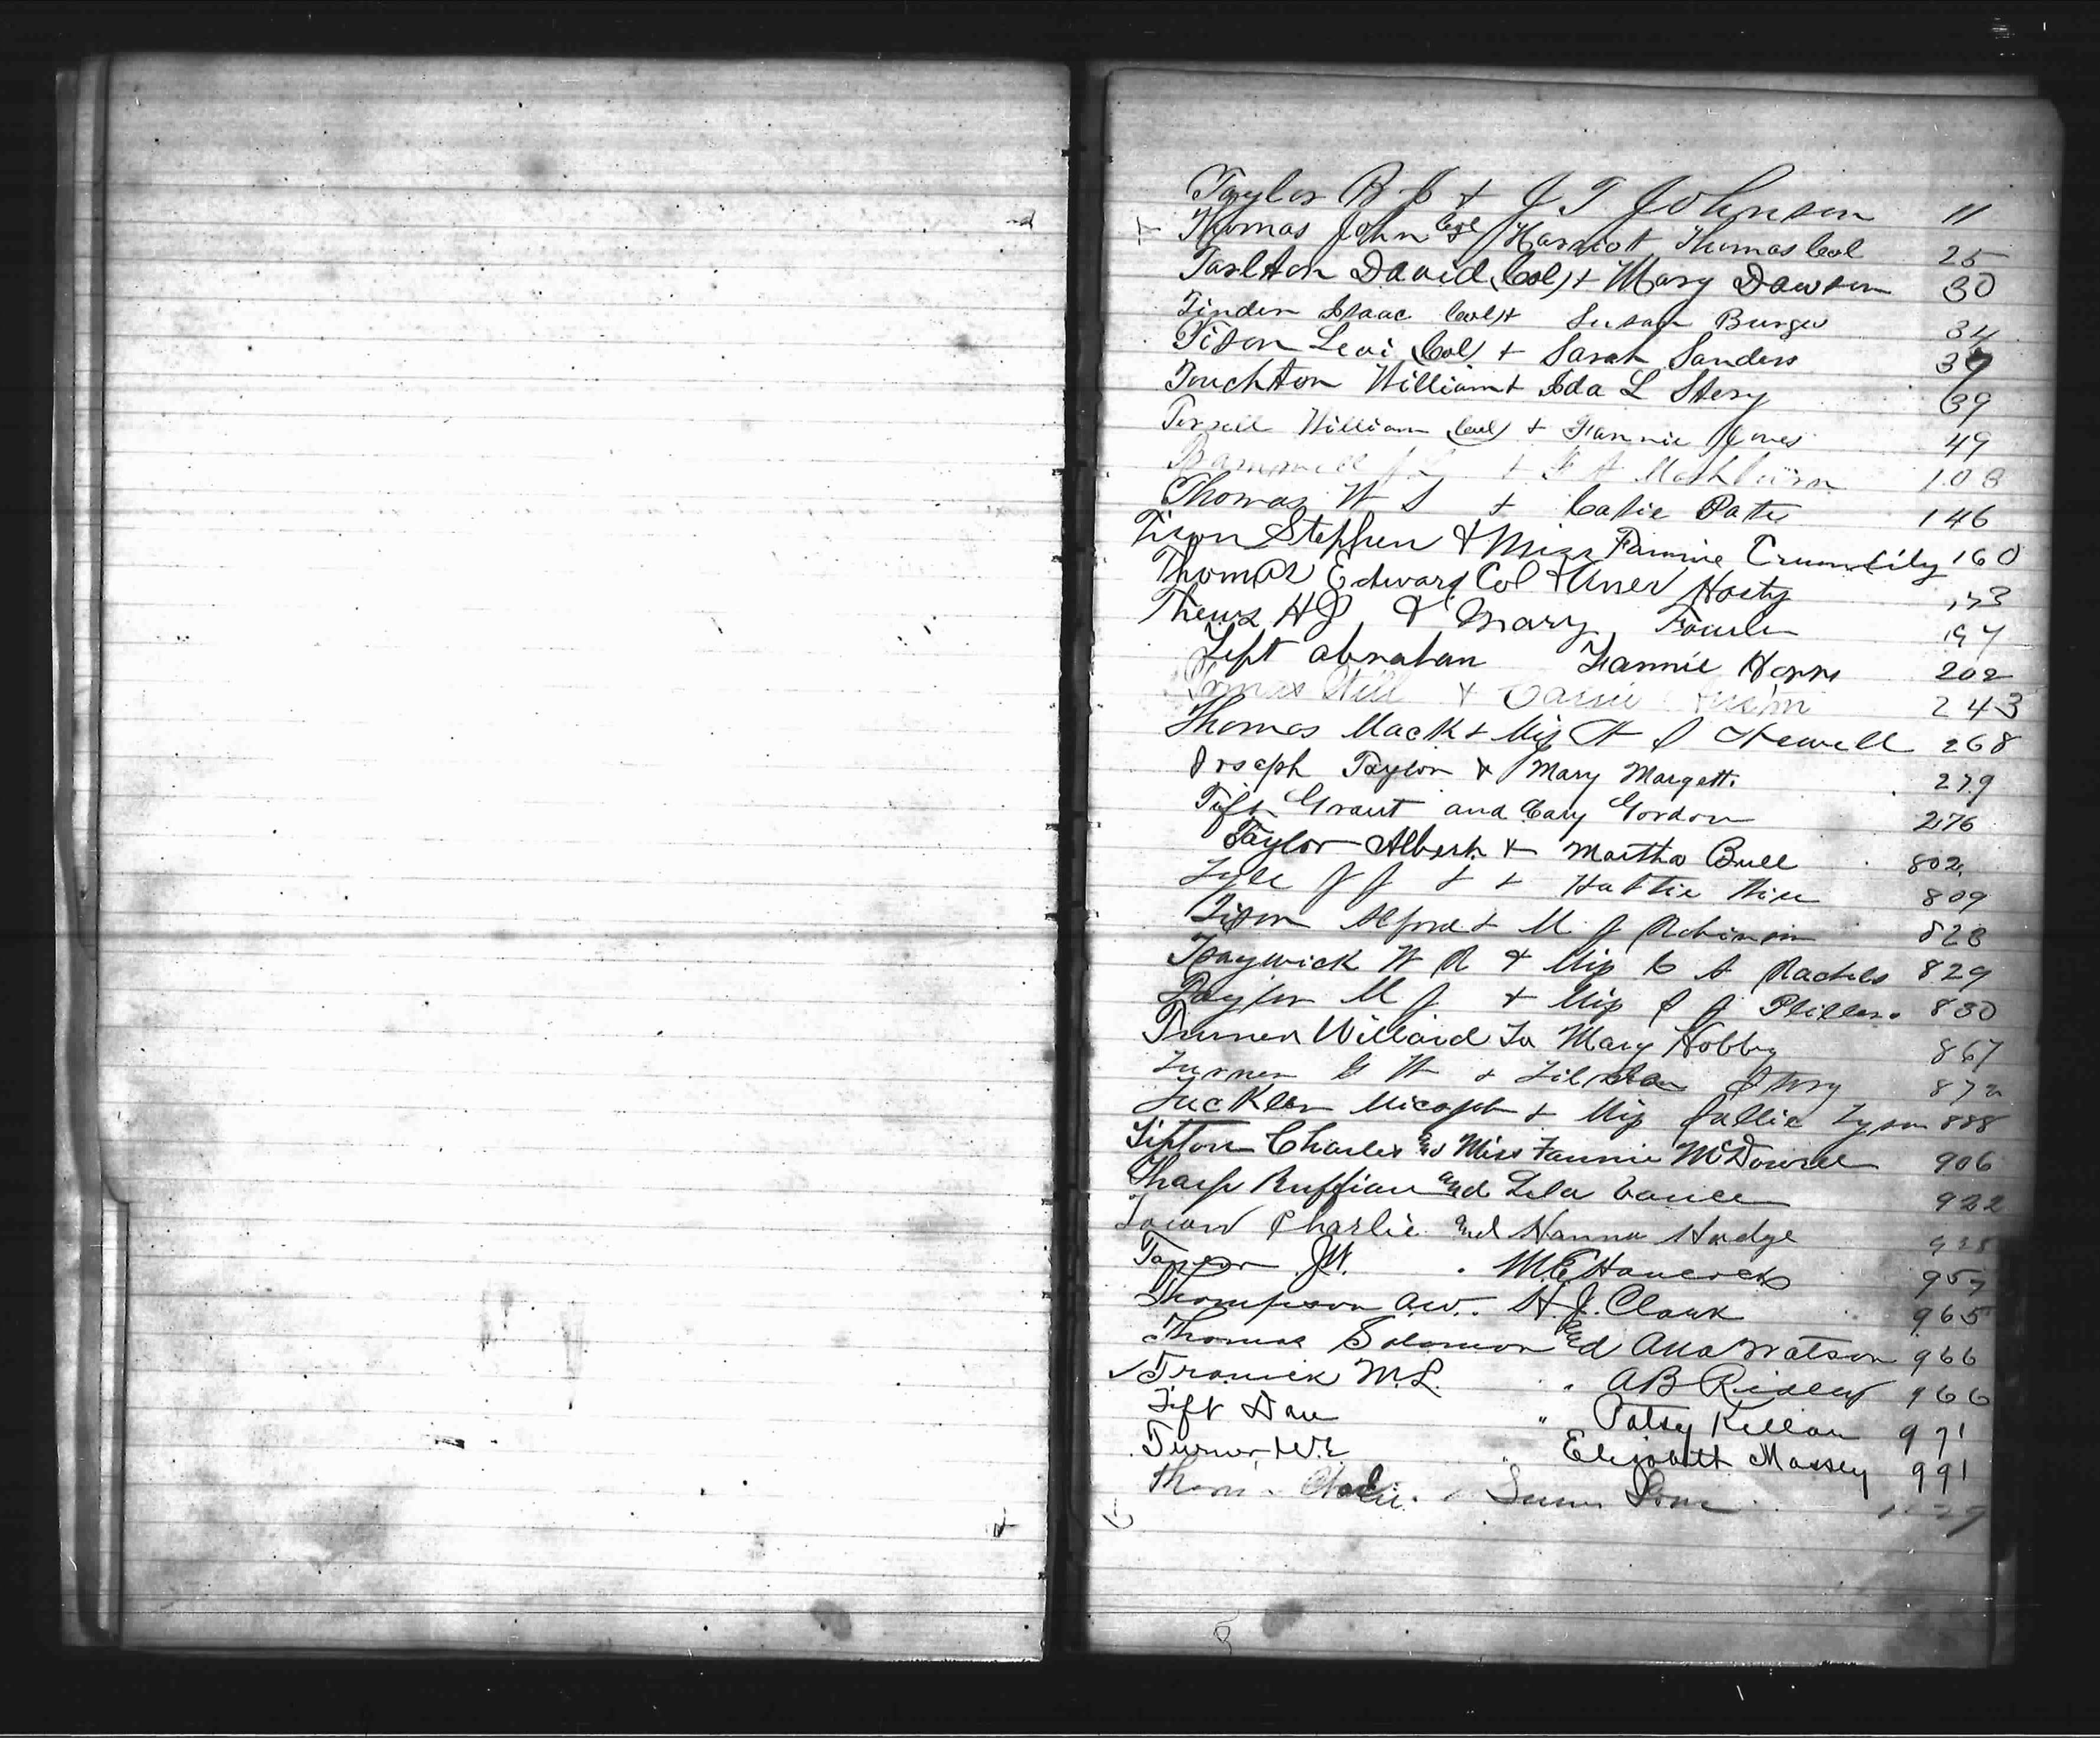 Taylor B J + J T Johnson 11
Thomas John Col Harriott Thomas Col 25
Tarlton David (Col) + Mary Dawson 30
Tinden Isaac Col + Susan Burges 34
Tison Levi (Col) + Sarah Sanders 37
Touchton William + Ida L Story 39
Terrell William (Col) + Fannie Jones 49
+ F A Mashburn 108
Thomas W S + Catie Pate 146
Tison Stephen & Miss Fannie Crumbily 160
Thomas Edward Col + Hasty 173
Thews H J & Mary Fowler 197
Tift Abraham Fannie Horns 202
Will + Cassie 243
Thomas Mack + Miss A S Newell 268
Joseph Taylor & Mary Margett. 279
Tift Grant and Cary Gordon 276
Taylor Albert + Martha Bull 802
Tyle J J + + Hattie 809
Tison Alfred + M J Robinson 828
Traywick W R & Miss C A Rachels 829
Taylor M J + Miss S J 830
Turner Willard To Mary Hobby 867
Turner G W + Story 872
Tuckler Micajah + Miss Sallie Tyson 888
Tipton Charles and Miss Fannie McDowell 906
Tharp Ruffian and Lela Vance 922
Charlie and Hanna Hodge 938
J.W. . M.E. Hancock 957
Thompson A.W. . H.J. Clark 965
Thomas Solomon and Watson 966
Trawick M.L. " A B Risley 966
Tift Dan " Patsy Kellam 971
Turner, W.E " Elizabeth Massey 991